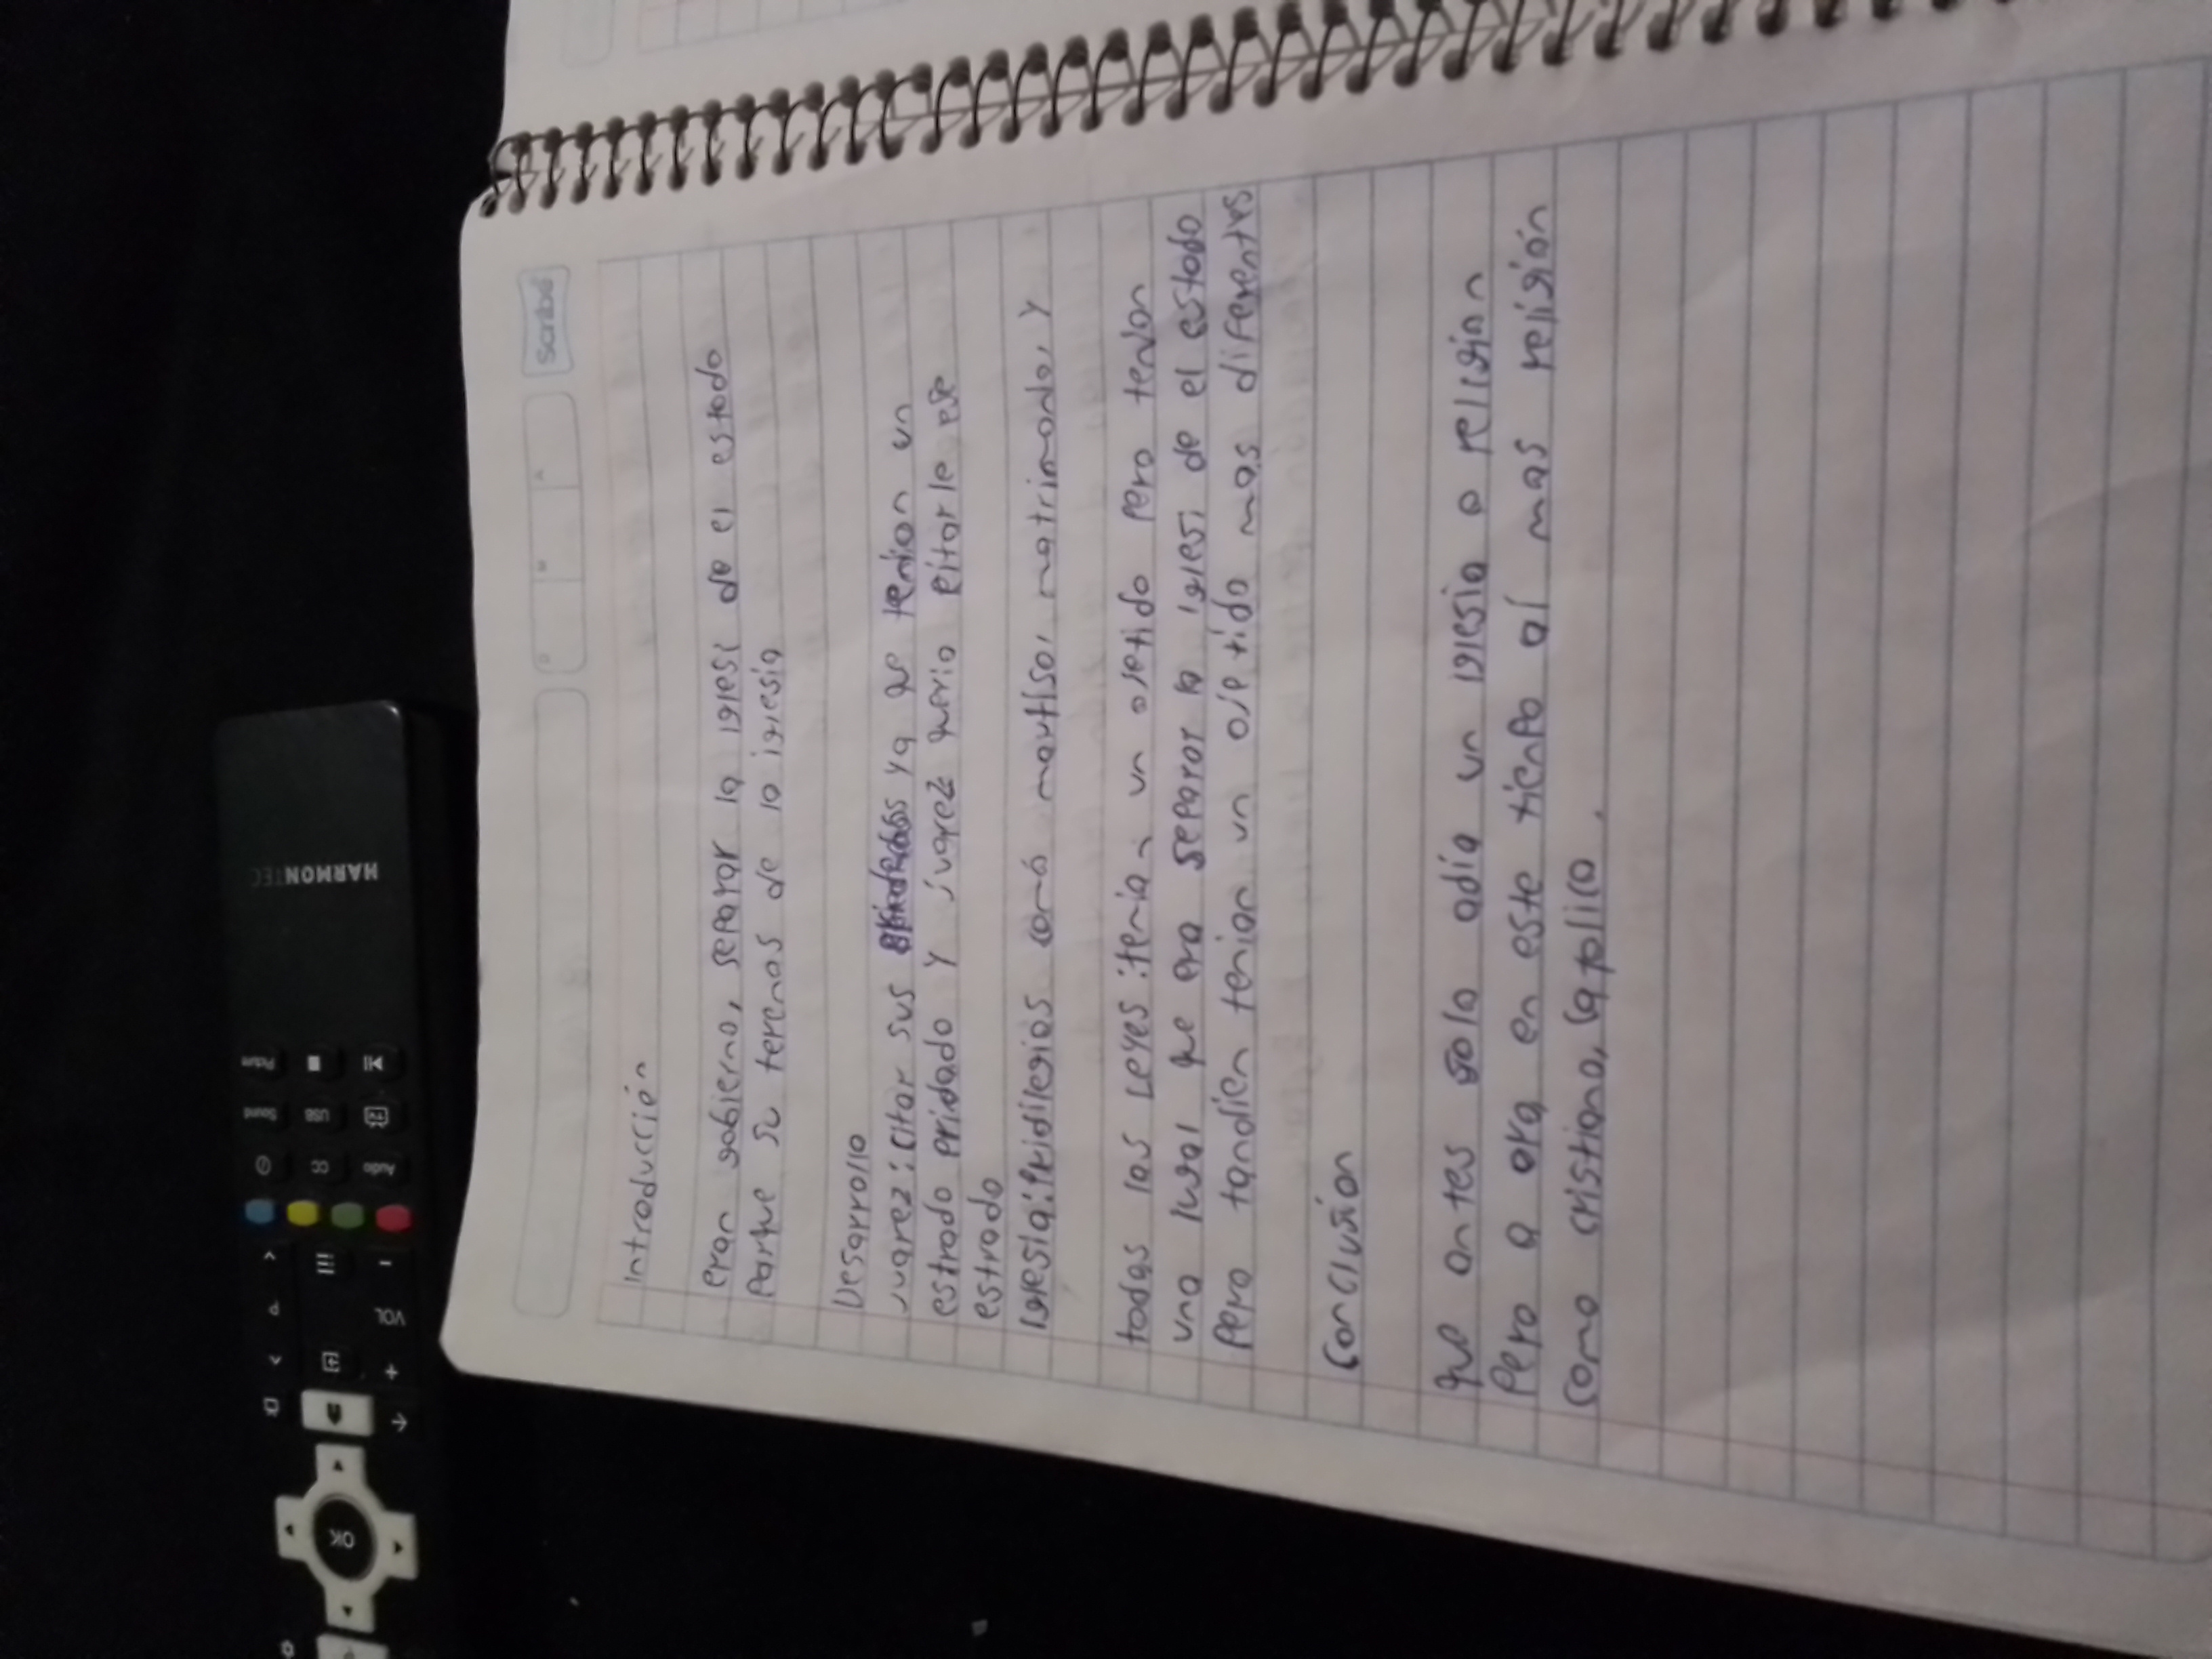 Scribe
D M A
Introducción
eran gobierno, separar la iglesi de el estado
Parque su terenos de la iglesia
Desarrollo
Juarez: citar sus ya que tenion un
estrado pridado y juarez queria eitarle ese
estrado
Iglesia: Pridilegios como mautiso, matrimodo, y
todas las Leyes: tenian un ojetido pero tendan
una lugal que era separar la iglesi de el estado
Pero tandien tenian un ojetido mas diferentes
Conclusion
que antes solo adia un iglesia o religion
Pero a ora en este tienpo aí mas religión
Como cristiano, Catolico.
HARMONTEC
Picture
Sound USB
CC Audio
P VOL
OK